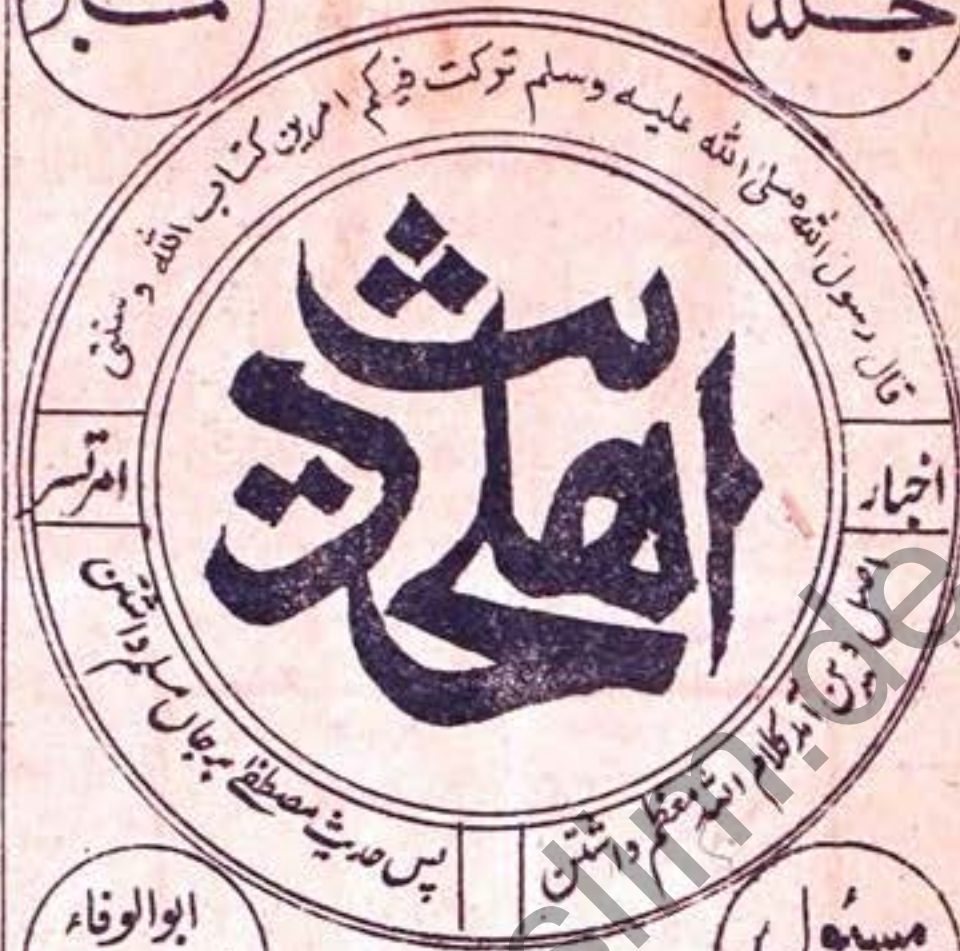 جلد
نمبر
قال رسول الله صلى الله عليه وسلم تركت فيكم امرين كتاب الله و سنتى
اهلحدیث
اخبار
امرتسر
اصل دین آمد کلام اللہ معظم داشتن
پس حدیث مصطفےٰ برجاں مسلم داشتن
مسئول
ابوالوفاء